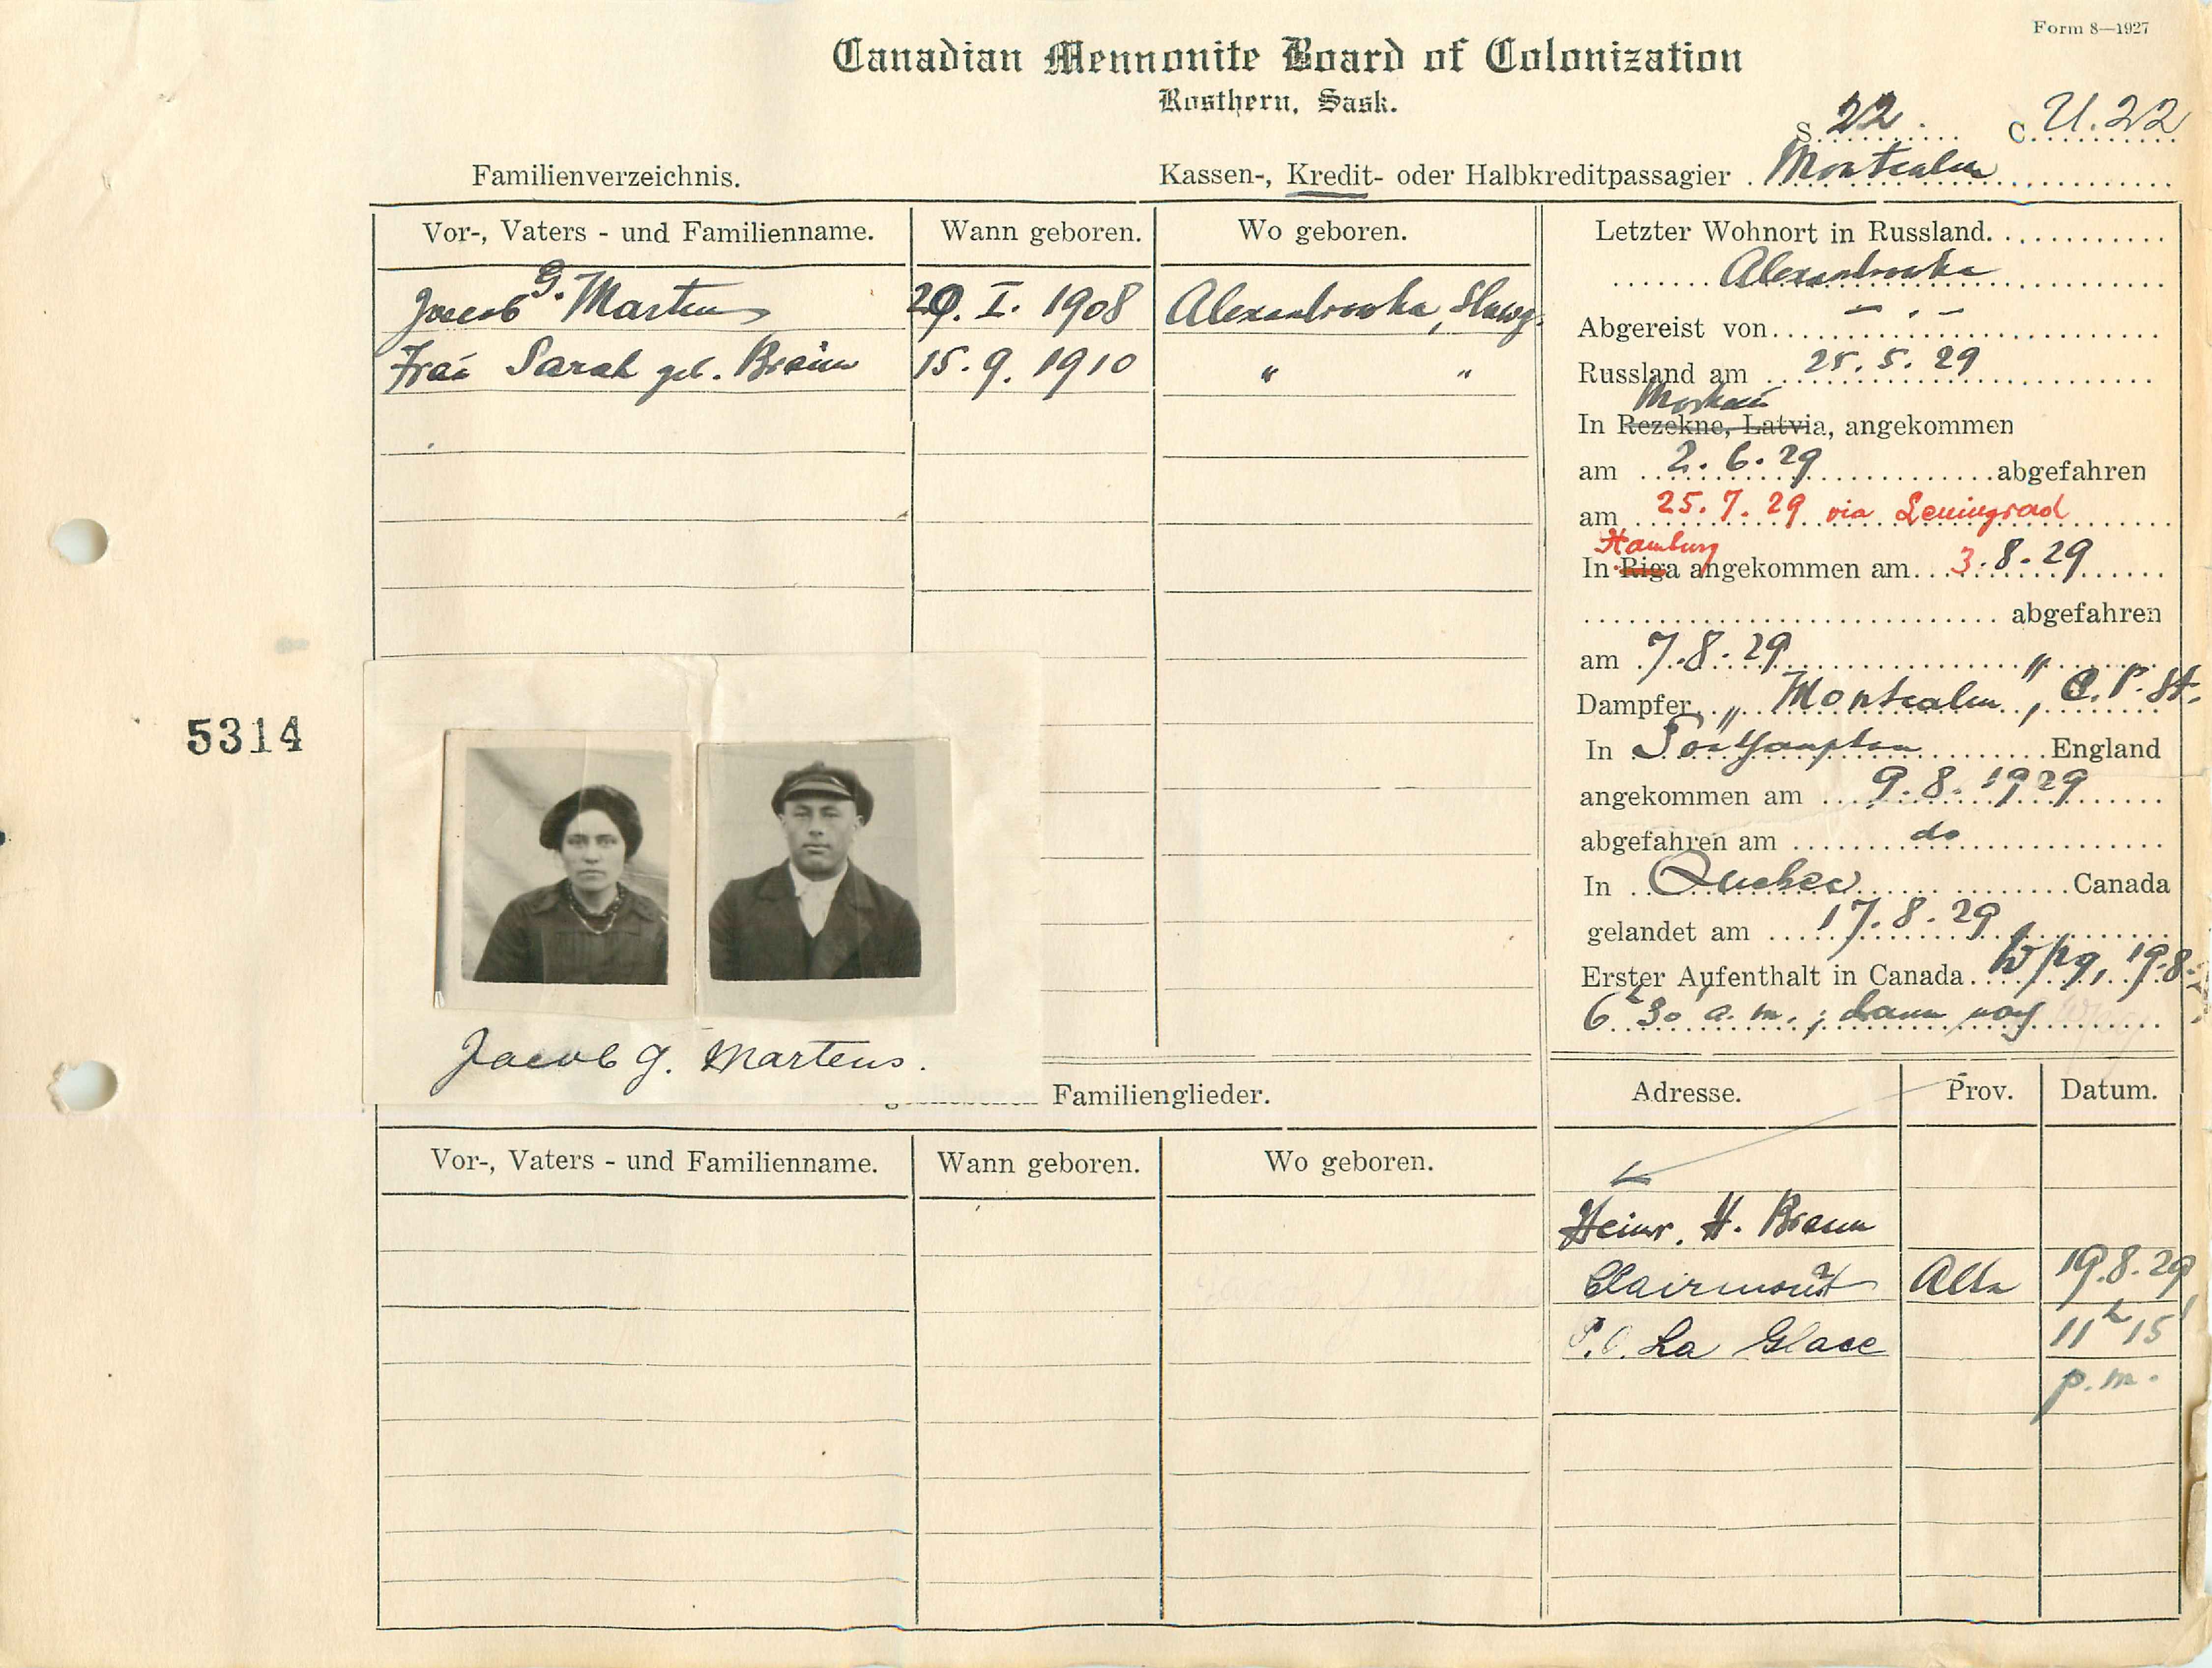 Form 8—1927
Canadian Mennonite Board of Colonization
Rosthern, Sask.
S. 22. C. U.22
Familienverzeichnis.
Kassen-, Kredit- oder Halbkreditpassagier. Montcalm
Vor-, Vaters - und Familienname. Wann geboren. Wo geboren.
Jacob G. Martens 20. I. 1908 Alexandrowka, Slawg.
Frau Sarah geb. Braun 15. 9. 1910 " "
5314
Jacob G. Martens.
Familienglieder.
Vor-, Vaters - und Familienname. Wann geboren. Wo geboren.
Letzter Wohnort in Russland.
Alexandrowka
Abgereist von - " -
Russland am 25. 5. 29
Moskau
In Rezekne, Latvia, angekommen
am 2. 6. 29 abgefahren
am 25. 7. 29 via Leningrad
Hamburg
In Riga angekommen am 3. 8. 29
abgefahren
am 7. 8. 29
Dampfer "Montcalm", C. P. St.
In Southampton England
angekommen am 9. 8. 1929
abgefahren am do
In Quebec Canada
gelandet am 17. 8. 29
Erster Aufenthalt in Canada. Wpg, 19.8.
6 h 30 a. m. ; dann nach
Adresse. Prov. Datum.
Heinr. H. Braun
Clairmont Alta 19.8.29
P.O. La Glace 11 h 15
p.m.